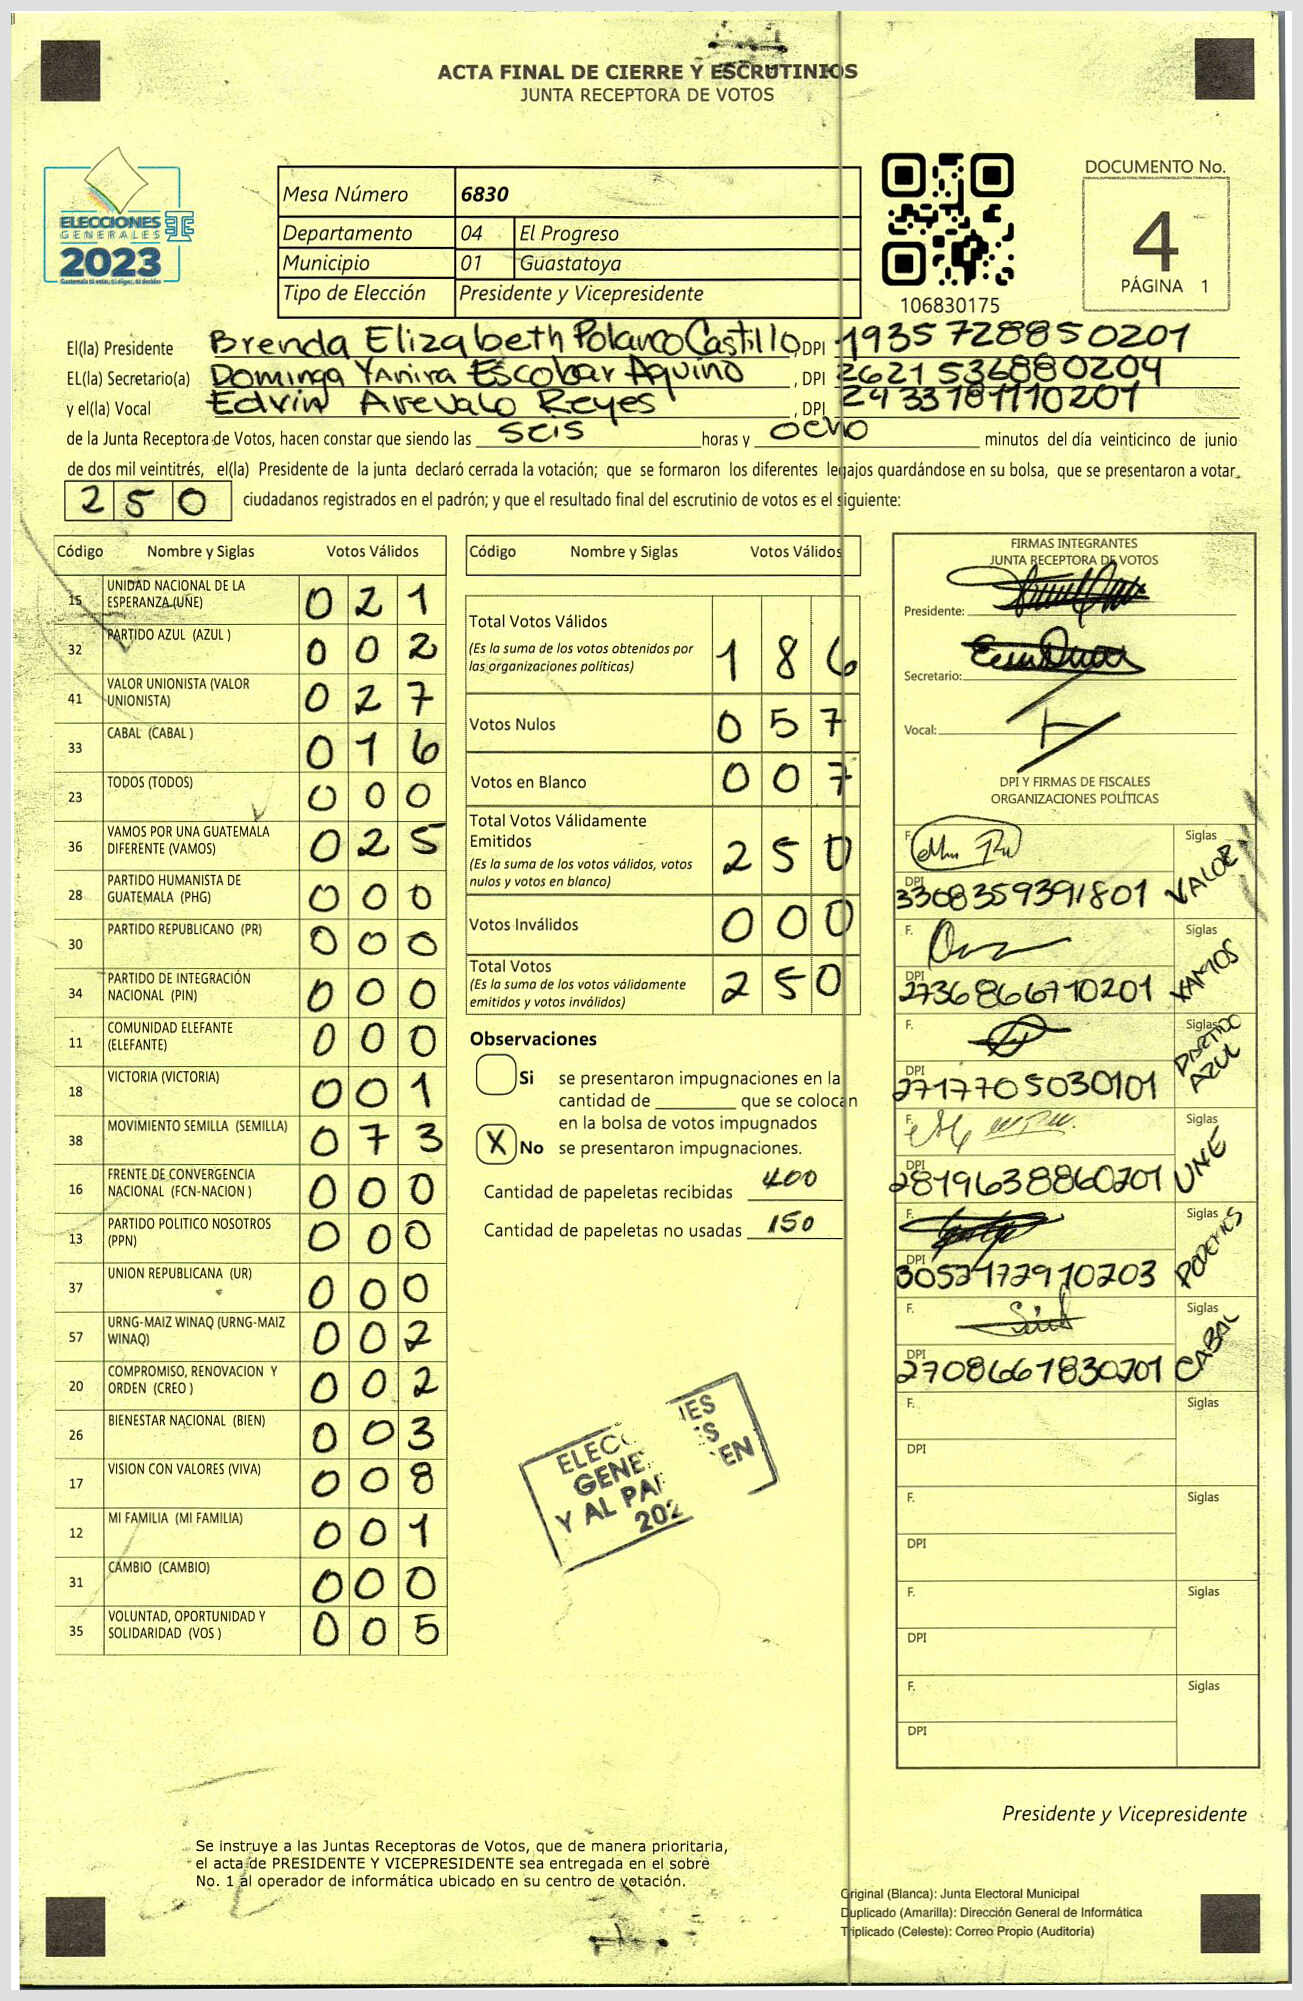 ACTA FINAL DE CIERRE Y ESCRUTINIOS
JUNTA RECEPTORA DE VOTOS
ELECCIONES
GENERALES
2023
Mesa Número 6830
Departamento 04 El Progreso
Municipio 01 Guastatoya
Tipo de Elección Presidente y Vicepresidente
106830175
DOCUMENTO No.
4
PÁGINA 1
El(la) Presidente Brenda Elizabeth Polanco Castillo, DPI 1935728850201
EL(la) Secretario(a) Dominga Yanira Escobar Aquino, DPI 2621536880204
y el(la) Vocal Edvin Arevalo Reyes, DPI 2433781110201
de la Junta Receptora de Votos, hacen constar que siendo las seis horas y ocho minutos del día veinticinco de junio
de dos mil veintitrés, el(la) Presidente de la junta declaró cerrada la votación; que se formaron los diferentes legajos quardándose en su bolsa, que se presentaron a votar
250 ciudadanos registrados en el padrón; y que el resultado final del escrutinio de votos es el siguiente:
Código Nombre y Siglas Votos Válidos
15 UNIDAD NACIONAL DE LA ESPERANZA (UNE) 021
32 PARTIDO AZUL (AZUL ) 002
41 VALOR UNIONISTA (VALOR UNIONISTA) 027
33 CABAL (CABAL ) 016
23 TODOS (TODOS) 000
36 VAMOS POR UNA GUATEMALA DIFERENTE (VAMOS) 025
28 PARTIDO HUMANISTA DE GUATEMALA (PHG) 000
30 PARTIDO REPUBLICANO (PR) 000
34 PARTIDO DE INTEGRACIÓN NACIONAL (PIN) 000
11 COMUNIDAD ELEFANTE (ELEFANTE) 000
18 VICTORIA (VICTORIA) 001
38 MOVIMIENTO SEMILLA (SEMILLA) 073
16 FRENTE DE CONVERGENCIA NACIONAL (FCN-NACION ) 000
13 PARTIDO POLITICO NOSOTROS (PPN) 000
37 UNION REPUBLICANA (UR) 000
57 URNG-MAIZ WINAQ (URNG-MAIZ WINAQ) 002
20 COMPROMISO, RENOVACION Y ORDEN (CREO ) 002
26 BIENESTAR NACIONAL (BIEN) 003
17 VISION CON VALORES (VIVA) 008
12 MI FAMILIA (MI FAMILIA) 001
31 CAMBIO (CAMBIO) 000
35 VOLUNTAD, OPORTUNIDAD Y SOLIDARIDAD (VOS ) 005
Código Nombre y Siglas Votos Válidos
Total Votos Válidos 186
(Es la suma de los votos obtenidos por
las organizaciones políticas)
Votos Nulos 057
Votos en Blanco 007
Total Votos Válidamente
Emitidos 250
(Es la suma de los votos válidos, votos
nulos y votos en blanco)
Votos Inválidos 000
Total Votos 250
(Es la suma de los votos válidamente
emitidos y votos inválidos)
Observaciones
Si se presentaron impugnaciones en la
cantidad de ________ que se colocan
en la bolsa de votos impugnados
X No se presentaron impugnaciones.
Cantidad de papeletas recibidas 400
Cantidad de papeletas no usadas 150
FIRMAS INTEGRANTES
JUNTA RECEPTORA DE VOTOS
Presidente:
Secretario:
Vocal:
DPI Y FIRMAS DE FISCALES
ORGANIZACIONES POLÍTICAS
F. Siglas
DPI 3308359391801 VALOR
F. Siglas
DPI 2736866710201 VAMOS
F. Siglas
DPI 2717705030101 PARTIDO AZUL
F. Siglas
DPI 2819638860201 UNE
F. Siglas
DPI 3052172910203 PODEMOS
F. Siglas
DPI 2708661830201 CABAL
F. Siglas
DPI
F. Siglas
DPI
F. Siglas
DPI
F. Siglas
DPI
Presidente y Vicepresidente
Se instruye a las Juntas Receptoras de Votos, que de manera prioritaria,
el acta de PRESIDENTE Y VICEPRESIDENTE sea entregada en el sobre
No. 1 al operador de informática ubicado en su centro de votación.
Original (Blanca): Junta Electoral Municipal
Duplicado (Amarilla): Dirección General de Informática
Triplicado (Celeste): Correo Propio (Auditoría)